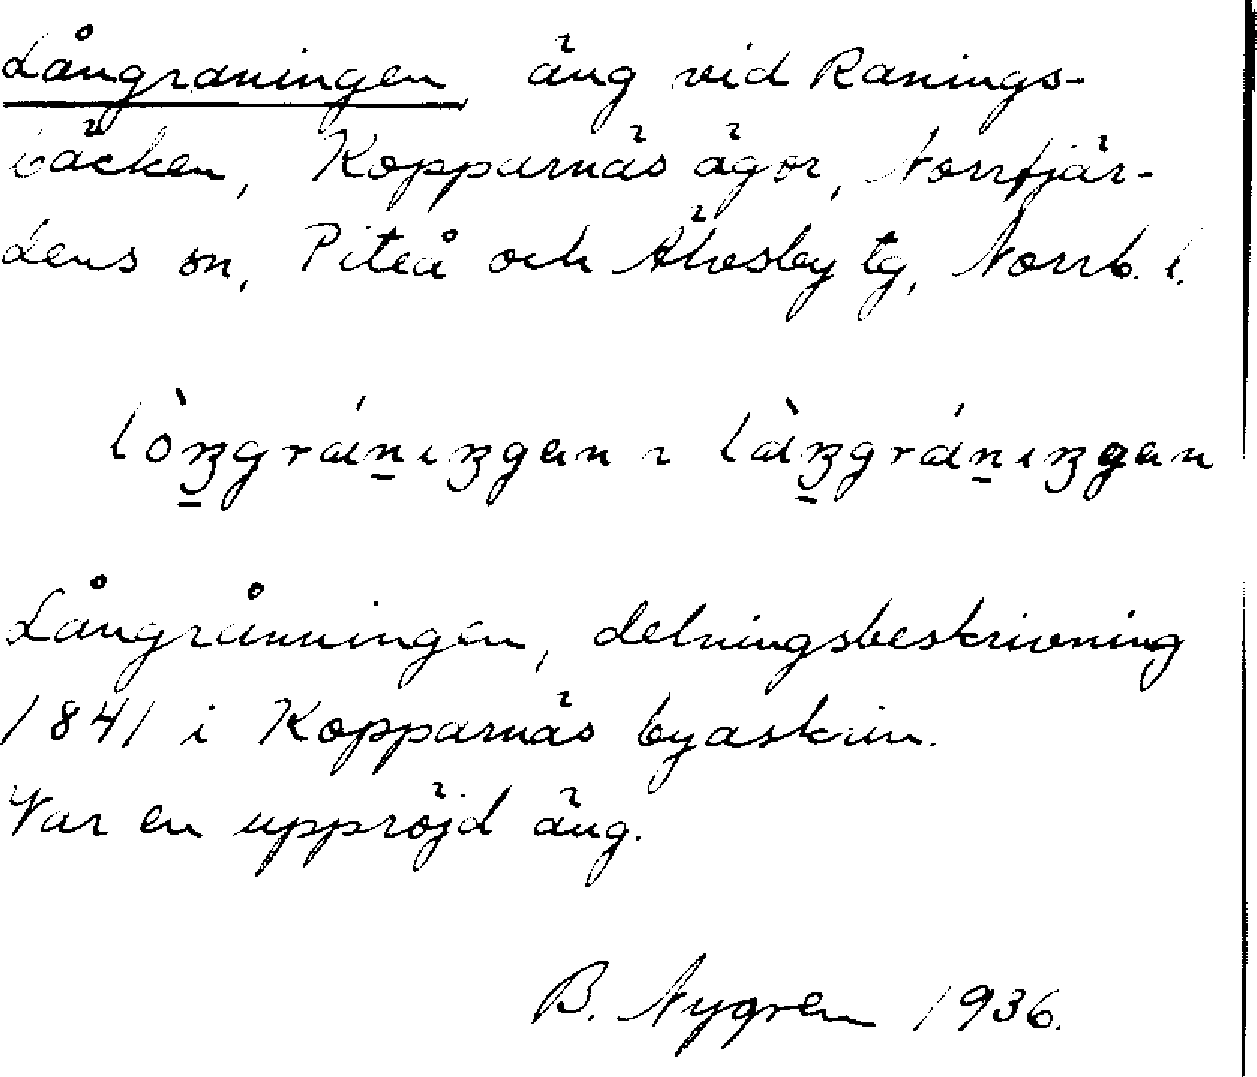 Långraningen äng vid Ranings-
bäcken, Kopparnäs ägor, Norrfjär-
dens sn, Piteå och Älvsby tg, Norrb. l.
lòŋgrániŋgen ~ làŋgrániŋgen
Långrånningen, delningsbeskrivning
1841 i Kopparnäs byaskrin.
Var en uppröjd äng.
B. Nygren 1936.